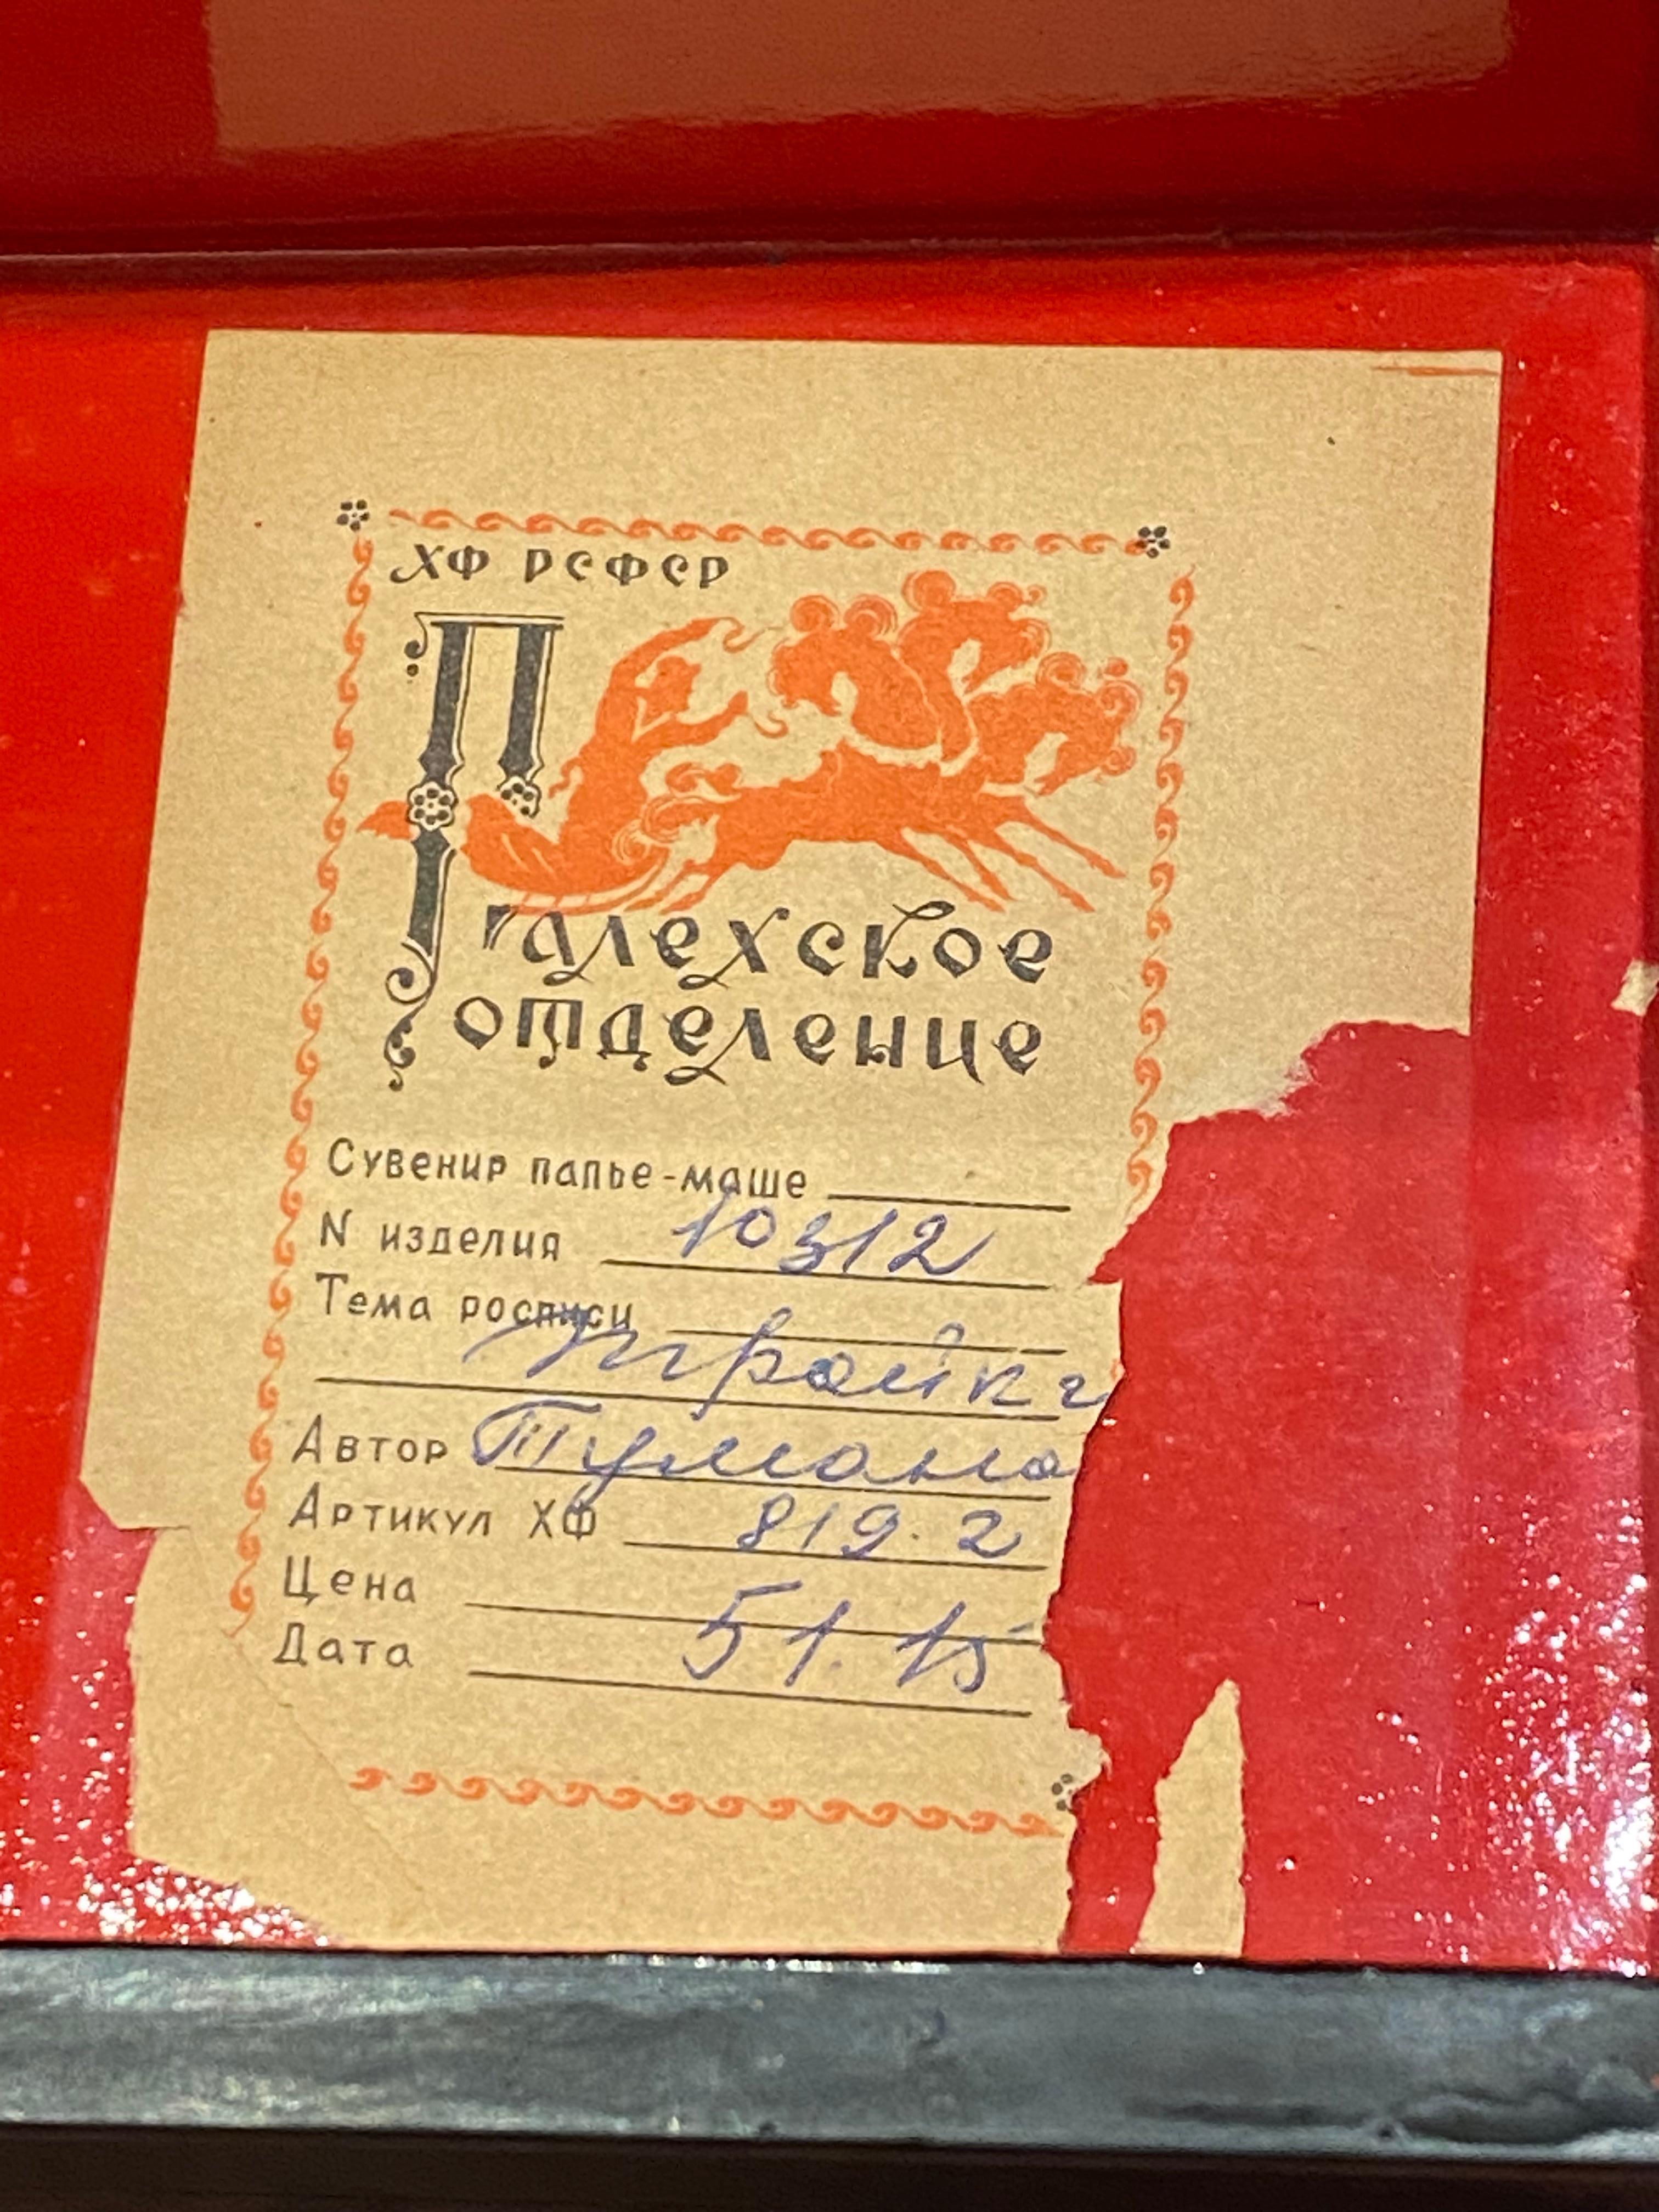 ХФ РСФСР
Палехское
отделение
Сувенир папье-маше
N изделия 10312
Тема росписи
тройка
Автор Тумано
Артикул ХФ 819.2
Цена 51.15
Дата